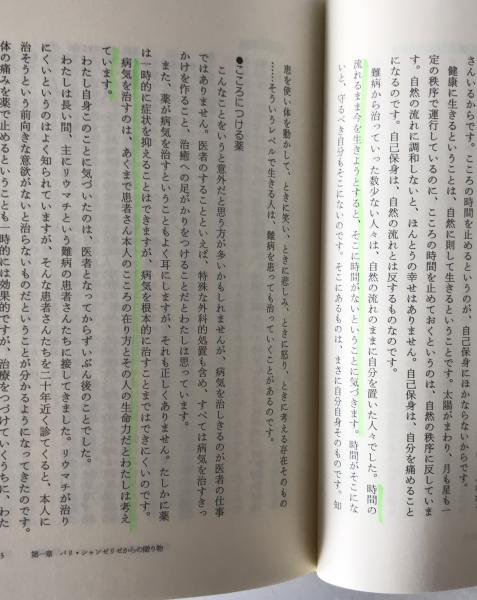 さんいるからです。こころの時間を止めるというのが、自己保身にほかならないからです。
健康に生きるということは、自然に則して生きるということです。太陽がまわり、月も星も一
定の秩序で運行しているのに、こころの時間を止めておくというのは、自然の秩序に反していま
す。自然の流れに調和しないと、ほんとうの幸せはありません。自己保身は、自分を痛めること
になるのです。自己保身は、自然の流れとは反するものなのです。
難病から治っていった数少ない人々は、自然の流れのままに自分を置いた人々でした。時間の
流れるまま今を生きようとすると、そこに時間がないということに気づきます。時間がそこにな
いと、守るべき自分もそこにないのです。そこにあるものは、まさに自分自身そのものです。知
恵を使い体を動かして、ときに笑い、ときに悲しみ、ときに怒り、ときに考える存在そのもの
……そういうレベルで生きる人は、難病を患っても治っていくことがあるのです。
●こころにつける薬
こんなことをいうと意外だと思う方が多いかもしれませんが、病気を治しきるのが医者の仕事
ではありません。医者のすることといえば、特殊な外科的処置も含め、すべては病気を治すきっ
かけを作ること、治癒への足がかりをつけることだとわたしは思っています。
また、薬が病気を治すということもよく耳にしますが、それも正しくありません。たしかに薬
は一時的に症状を抑えることはできますが、病気を根本的に治すことまではできにくいのです。
病気を治すのは、あくまで患者さん本人のこころの在り方とその人の生命力だとわたしは考え
ています。
わたし自身このことに気づいたのは、医者となってからずいぶん後のことでした。
わたしは長い間、主にリウマチという難病の患者さんたちに接してきました。リウマチが治り
にくいというのはよく知られていますが、そんな患者さんたちを二十年近く診てくると、本人に
治そうという前向きな意欲がないと治らないものだということが分かるようになってきたのです。
体の痛みを薬で止めるということも一時的には効果的ですが、治療をつづけていくうちに、わた
第一章 パリ・シャンゼリゼからの贈り物